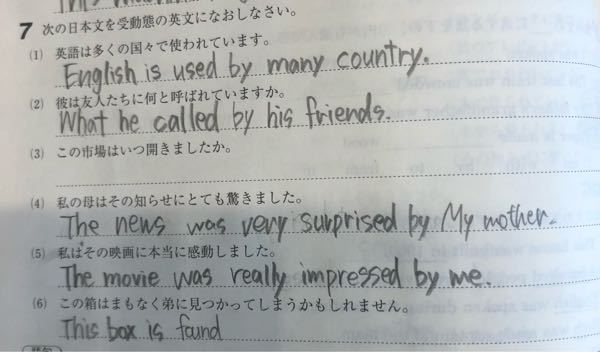 7 次の日本文を受動態の英文になおしなさい。
(1) 英語は多くの国々で使われています。
English is used by many country.
(2) 彼は友人たちに何と呼ばれていますか。
What he called by his friends.
(3) この市場はいつ開きましたか。
(4) 私の母はその知らせにとても驚きました。
The news was very surprised by My mother.
(5) 私はその映画に本当に感動しました。
The movie was really impressed by me.
(6) この箱はまもなく弟に見つかってしまうかもしれません。
This box is found